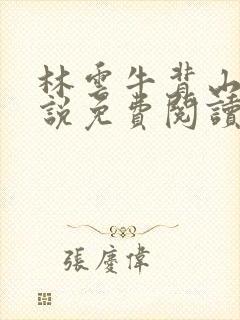 林雲牛背山
說免費閱讀
張慶偉